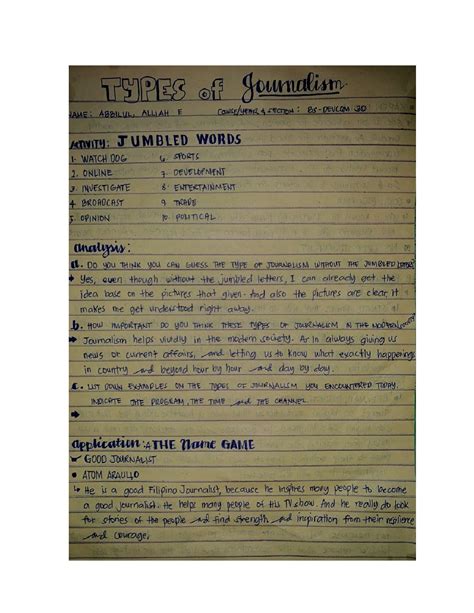 TYPES of Journalism
NAME: ABBILUL, ALLIAH F. COURSE/YEAR & SECTION: BS-DEVCOM 3D
ACTIVITY: JUMBLED WORDS
1. WATCH DOG 6. SPORTS
2. ONLINE 7. DEVELOPMENT
3. INVESTIGATE 8. ENTERTAINMENT
4. BROADCAST 9. TRADE
5. OPINION 10. POLITICAL
analysis:
a. DO YOU THINK YOU CAN GUESS THE TYPE OF JOURNALISM WITHOUT THE JUMBLED LETTERS
Yes, even though without the jumbled letters, I can already get the
idea base on the pictures that given. And also the pictures are clear, it
makes me get understood right away.
b. HOW IMPORTANT DO YOU THINK THESE TYPES OF JOURNALISM IN THE MODERN
Journalism helps vividly in the modern society. As in always giving us
news or current affairs, and letting us to know what exactly happenings
in country and beyond hour by hour and day by day.
c. LIST DOWN EXAMPLES ON THE TYPES OF JOURNALISM YOU ENCOUNTERED TODAY.
INDICATE THE PROGRAM, THE TIME and THE CHANNEL.
application: THE Name GAME
GOOD JOURNALIST
ATOM ARAULLO
He is a good Filipino Journalist, because he inspires many people to become
a good journalist. He helps many people of his TV show. And he really do look
for stories of the people and find strength and inspiration from their resilience
and courage.